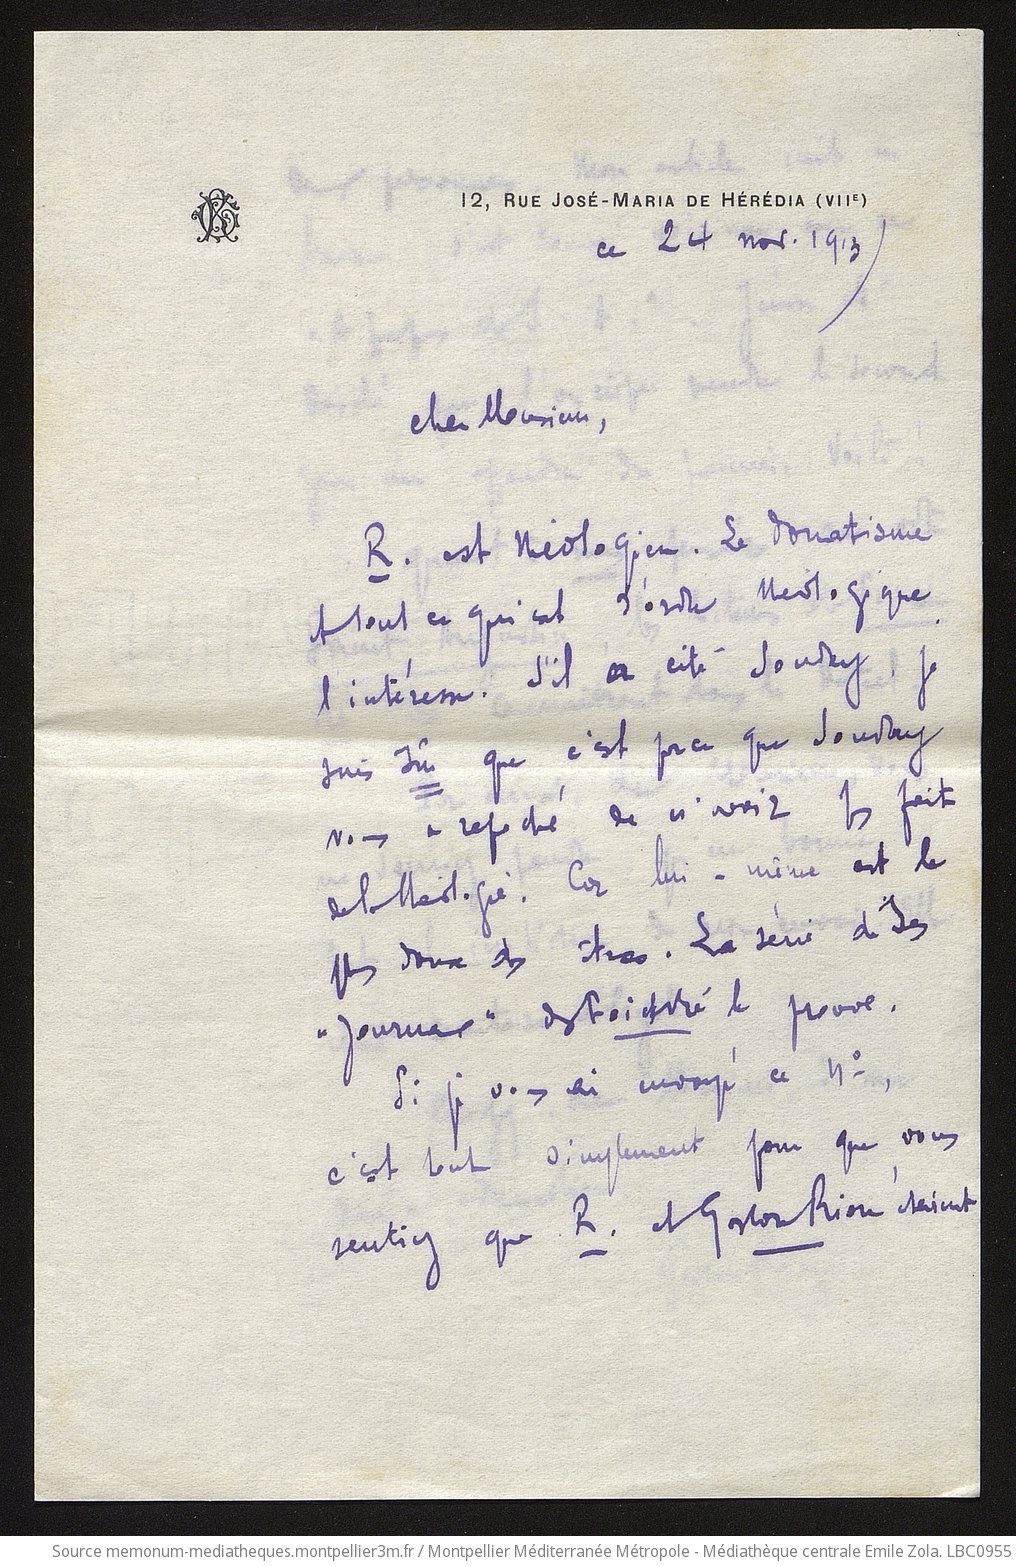 12, RUE JOSÉ-MARIA DE HÉRÉDIA (VIIE)
ce 24 nov. 1913
cher Monsieur,
R. est théologien. Le Donatisme
et tout ce qui est d'ordre théologique
l'intéresse. S'il a cité Souday, je
suis sûr que c'est parce que Souday
vous a reproché de n'avoir pas fait
de la théologie. Car lui-même est le
plus doux des êtres. La série de "Ses
"Journaux" le prouve.
Si je vous ai envoyé ce No,
c'est tout simplement pour que vous
sentiez que R. et Gaston Riou étaient
Source memonum-mediatheques.montpellier3m.fr / Montpellier Méditerranée Métropole - Médiathèque centrale Emile Zola. LBC0955